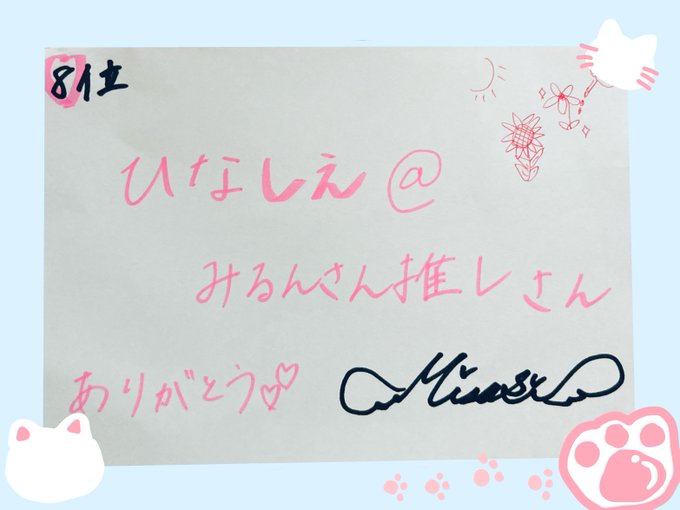 8位
ひなしえ@
みるんさん推しさん
ありがとう♡♡